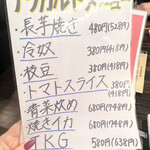 アラカルトメニュー
・長芋焼き 480円(528円)
・冷奴 380円(418円)
・枝豆 380円(418円)
・トマトスライス 380円(418円)
・青菜炒め 680円(748円)
・焼きイカ 680円(748円)
・TKG 580円(638円)